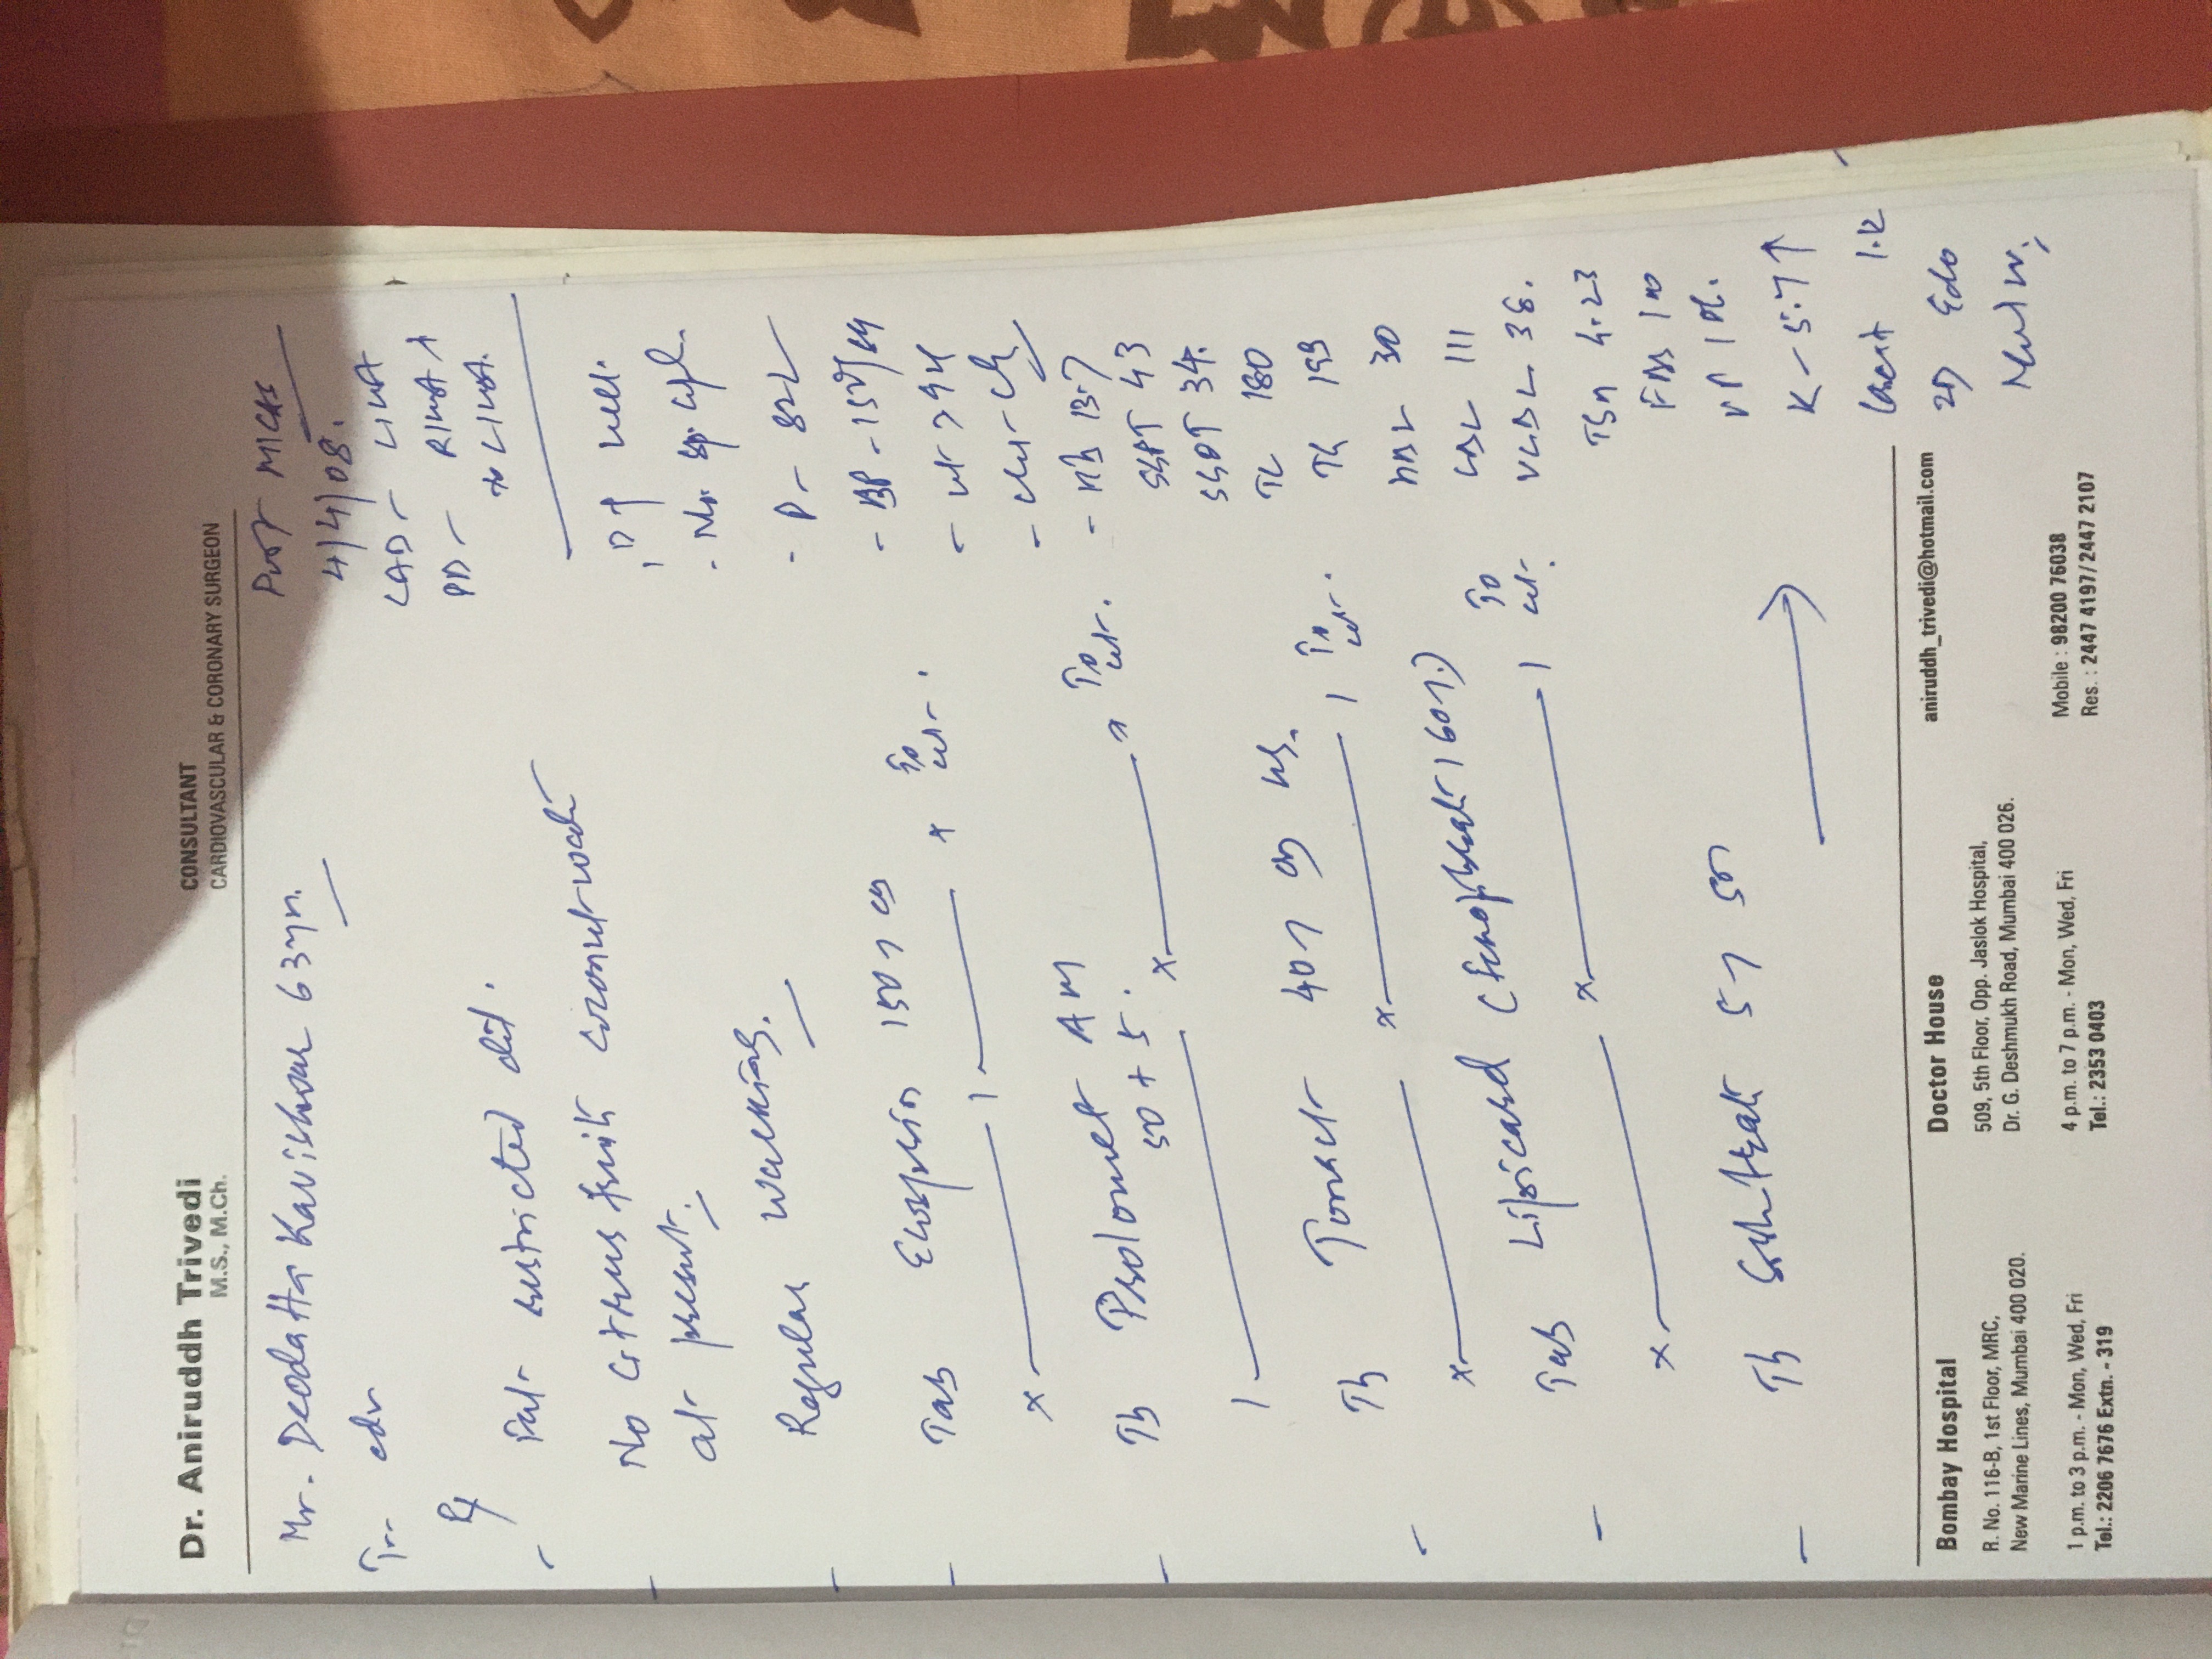 Dr. Aniruddh Trivedi
M.S., M.Ch.
CONSULTANT
CARDIOVASCULAR & CORONARY SURGEON
Mr. Deodatta Kavishwar 63yr.
Adv
Rx
Fat restricted diet.
No citrus fruit coconut water
at present.
Regular walking.
Tab Ecosprin 150 mg
x 1 x To cont.
Tb Prolomet AM
50 + 5.
1 x 1 To cont.
Tb Tonact 40 mg HS.
x x 1 To cont.
Tab Lipicard (fenofibrate 160mg)
x x 1 To cont.
Tb 5 mg SOS
Post MICAS
4/4/08.
LAD - LIMA
PD - RIMA
to LIMA.
well.
- P - 82
- BP - 150/
- wt > 94
- Chest - Clr
- Hb 13.7
SGPT 43
SGOT 34.
TC 180
TG 199
HDL 30
LDL 111
VLDL 38.
TSH 4.23
FBS 110
K - 5.7 ↑
Creat 1.2
2D Echo
Bombay Hospital
R. No. 116-B, 1st Floor, MRC,
New Marine Lines, Mumbai 400 020.
1 p.m. to 3 p.m. - Mon, Wed, Fri
Tel.: 2206 7676 Extn. - 319
Doctor House
509, 5th Floor, Opp. Jaslok Hospital,
Dr. G. Deshmukh Road, Mumbai 400 026.
4 p.m. to 7 p.m. - Mon, Wed, Fri
Tel.: 2353 0403
aniruddh_trivedi@hotmail.com
Mobile : 98200 76038
Res. : 2447 4197/2447 2107